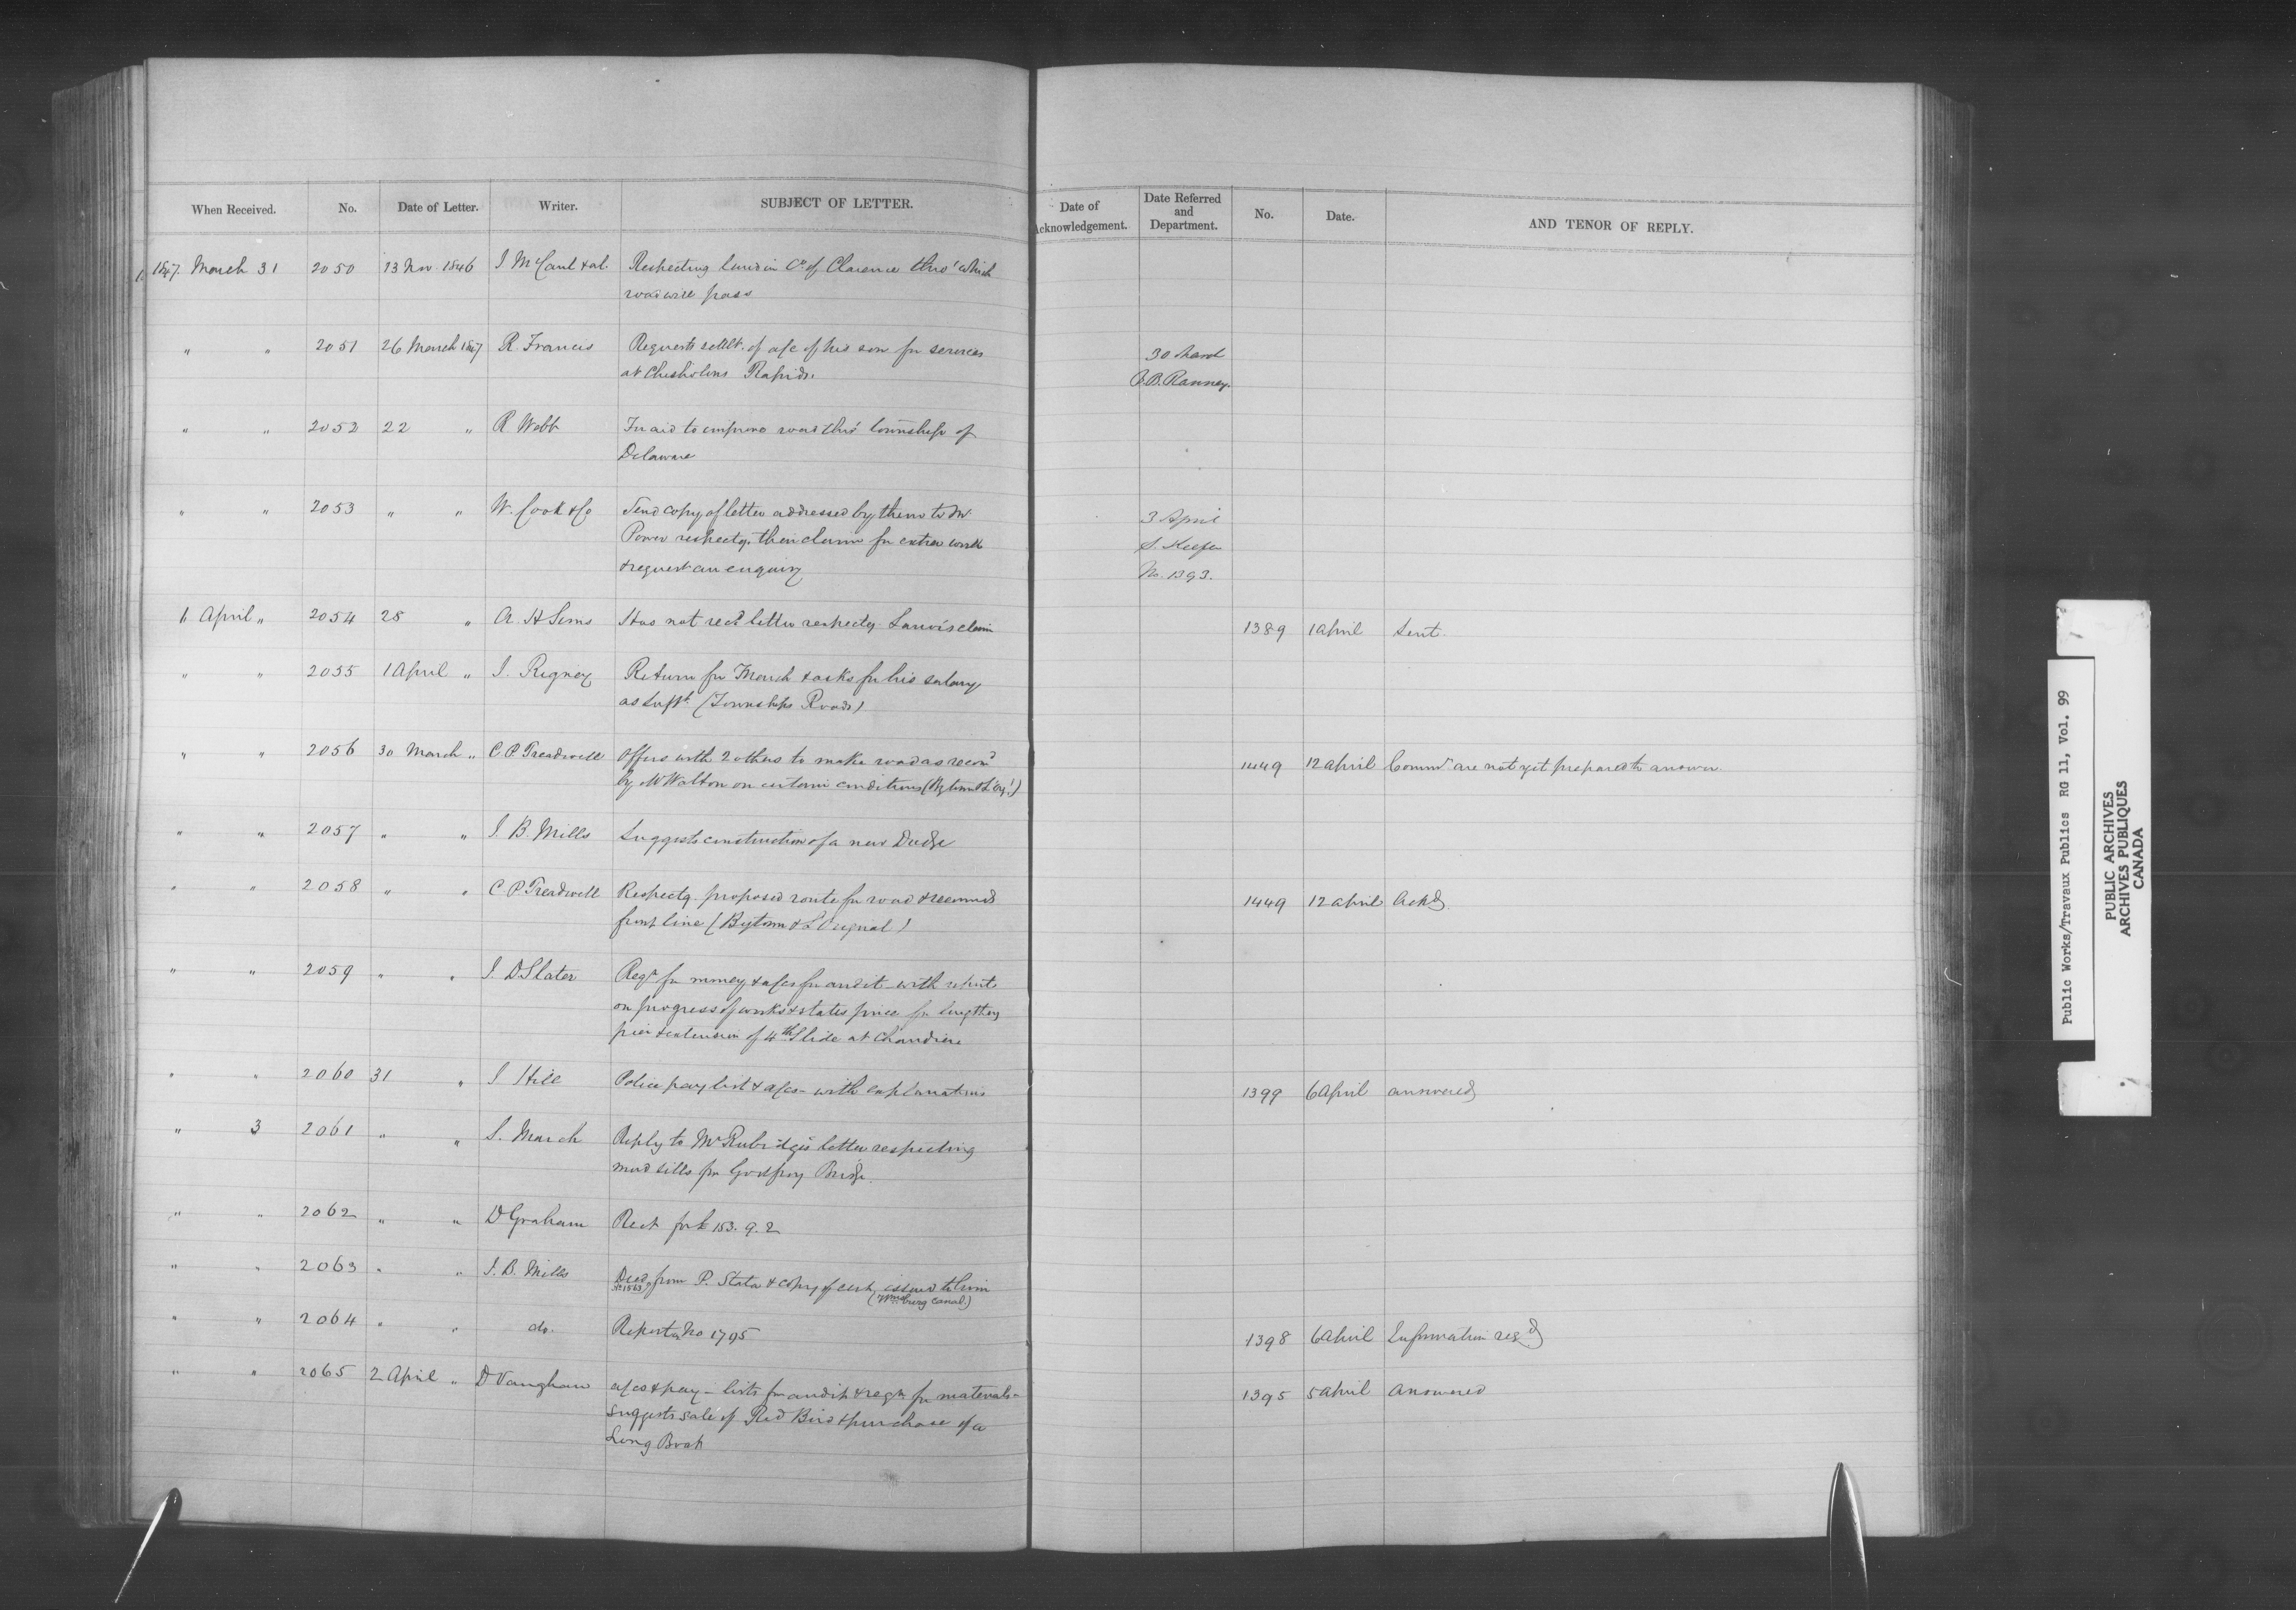 When Received. No. Date of Letter. Writer. SUBJECT OF LETTER.
Date of Acknowledgement. Date Referred and Department. No. Date. AND TENOR OF REPLY.
1847. March 31 2050 13 Nov 1846 J McCaul & al. Respecting land in Co of Clarence thro' which
road will pass
" " 2051 26 March 1847 R. Francis Requests settlt. of a/c of his son for services 30 March
at Chisholms Rapids. B. B. Ranney.
" " 2052 22 " R Webb For aid to improve road thro' township of
Delaware
" " 2053 " " W. Cook & Co Send copy of letter addressed by them to Mr 3 April
Power respectg. their claim for extra work S. Keefer
& request an enquiry No. 1393.
1 April " 2054 28 " A. H Sims Has not recd letter respectg claim 1389 1 April Sent.
" " 2055 1 April " J. Rigney Return for March & asks for his salary
as Supt. (Townships Roads)
" " 2056 30 March " C. P. Treadwell Offers with 2 others to make road as recomd 1449 12 April Commrs are not yet prepared to answer.
by Mr Walton on certain conditions (Bytown & L'Orig.l)
" " 2057 " " J. B. Mills Suggests construction of a new Dredge
" " 2058 " " C. P. Treadwell Respectg. proposed route for road & recommds 1449 12 April Ackd.
front line (Bytown & L'Orignal)
" " 2059 " " J. D Slater Reqn for money & a/cs for audit - with reports
on progress of works & states price for lengtheng
pier & extension of 4th Slide at Chaudiere
" " 2060 31 " J Hill Police pay list & a/cs - with explanations 1399 6 April answered
" 3 2061 " " S. March Reply to Mr Rubidge's letter respecting
mud sills for Godfroy Bridge.
" " 2062 " " D Graham Rect for £153. 9. 2
" " 2063 " " J. B. Mills Deed from P. Stata & copy of cert. issued to him
No 1563 (Wmsburg Canal.)
" " 2064 " " do. Reports on No 1795 1398 6 April Information reqd
" " 2065 2 April " D Vaughan a/cs & pay-lists for audit & reqn for materials - 1395 5 April Answered
suggests sale of Red Bird & purchase of a
Long Boat
Public Works/Travaux Publics RG 11, Vol. 99
PUBLIC ARCHIVES
ARCHIVES PUBLIQUES
CANADA